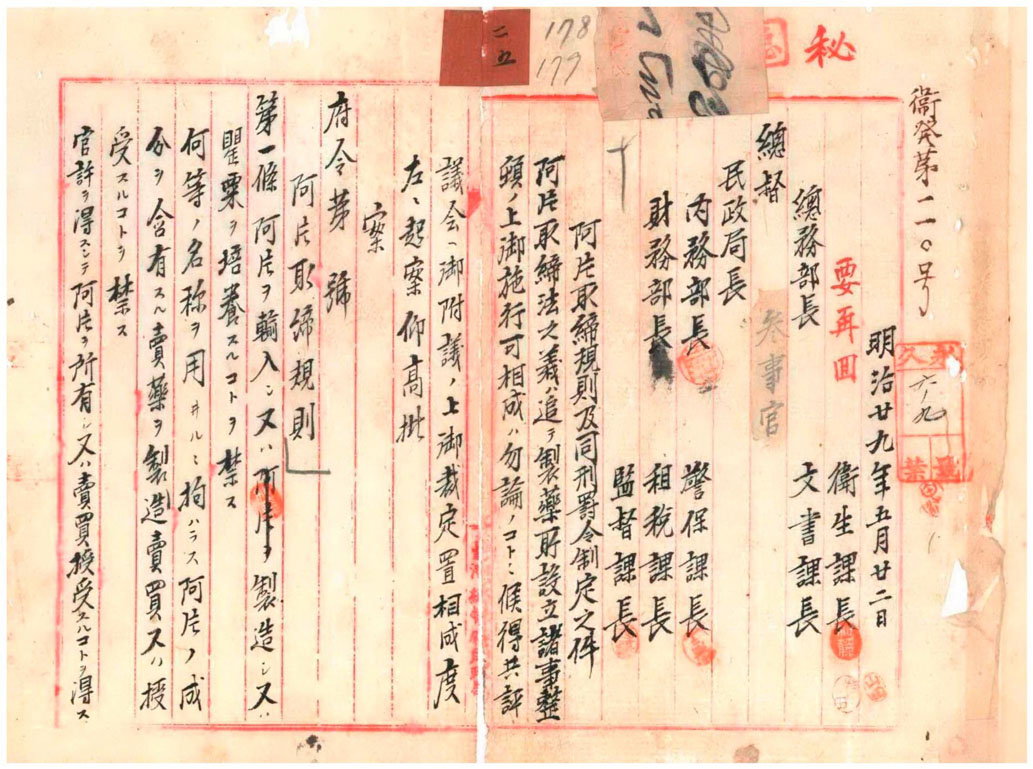 秘
衛発第二一〇号
明治廿九年五月廿二日
永久
六ノ九
要再回
衛生課長
總務部長
文書課長
總督
參事官
民政局長
内務部長
警保課長
財務部長
租税課長
監督課長
阿片取締規則及同刑罰令制定之件
阿片取締法之義ハ追テ製藥所設立諸事整
頓ノ上御施行可相成ハ勿論ノコトニ候得共評
議会ヘ御附議ノ上御裁定置相成度
左ニ起案仰高批
案
府令第 號
阿片取締規則
第一條 阿片ヲ輸入シ又ハ阿片ヲ製造シ又ハ
罌粟ヲ培養スルコトヲ禁ス
何等ノ名称ヲ用ヰルニ拘ハラス阿片ノ成
分ヲ含有スル賣藥ヲ製造賣買又ハ授
受スルコトヲ禁ス
官許ヲ得スシテ阿片ヲ所有シ又ハ賣買授受スルコトヲ得ス
178
179
二五